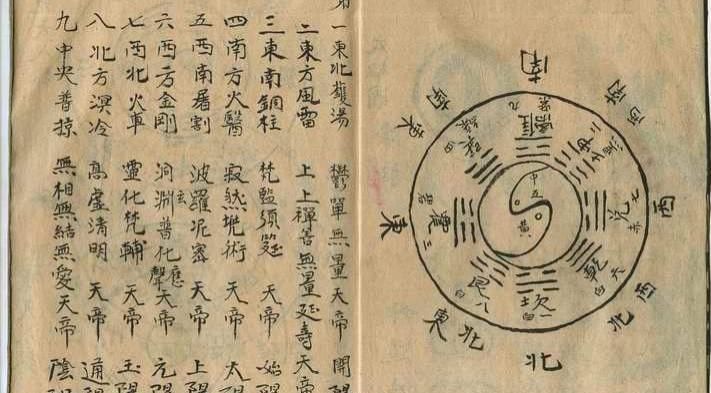 南
西南
西
西北
北
東北
東
東南
離 九
坤 二
兌 七 赤
乾 六 白
坎 一 白
艮 八 白
震 三
巽 四
中五
黃
一東北鑊湯 鬱單無量天帝 開
二東方風雷 上上禪善無量延壽天帝
三東南銅柱 梵監須延 天帝 始
四南方火翳 寂然兜術 天帝 太
五西南屠割 波羅尼密 天帝 上
六西方金剛 洞淵玄普化應聲天帝 元
七西北火車 靈化梵輔 天帝 玉
八北方溟冷 高虛清明 天帝 通
九中央普掠 無相無結無愛天帝 陰